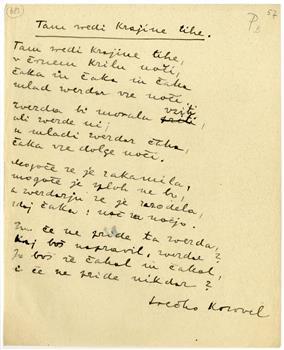 (68)
P B
57
Tam sredi Krajine tihe.
Tam sredi Krajine tihe,
v črnem Krilu noči,
čaka in čaka in čaka
mlad zvezdar vse noči.
Zvezda bi morala vziti,
ali zvezde ni;
a mladi zvezdar čaka,
čaka vse dolge noči.
Mogoče se je zakasnila,
mogoče je sploh ne bo,
a zvezdarju se je zazdela,
zdaj čaka; noč za nočjo.
In če ne pride ta zvezda,
Kaj boš napravil, zvezdar?
Ja boš še čakal in čakal,
in če ne pride nikdar?
Srečko Kosovel